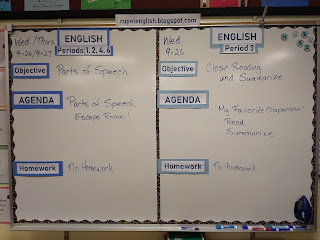 rupelenglish.blogspot.com
Wed/Thurs
9-26/9-27
ENGLISH
Periods 1, 2, 4, 6
Objective
Parts of Speech
AGENDA
Parts of Speech
Escape Room!
Homework
No Homework
Wed
9-26
ENGLISH
Period 3
Objective
Close Reading
and Summarize
AGENDA
"My Favorite Chaperone"
Read
Summarize
Homework
No homework